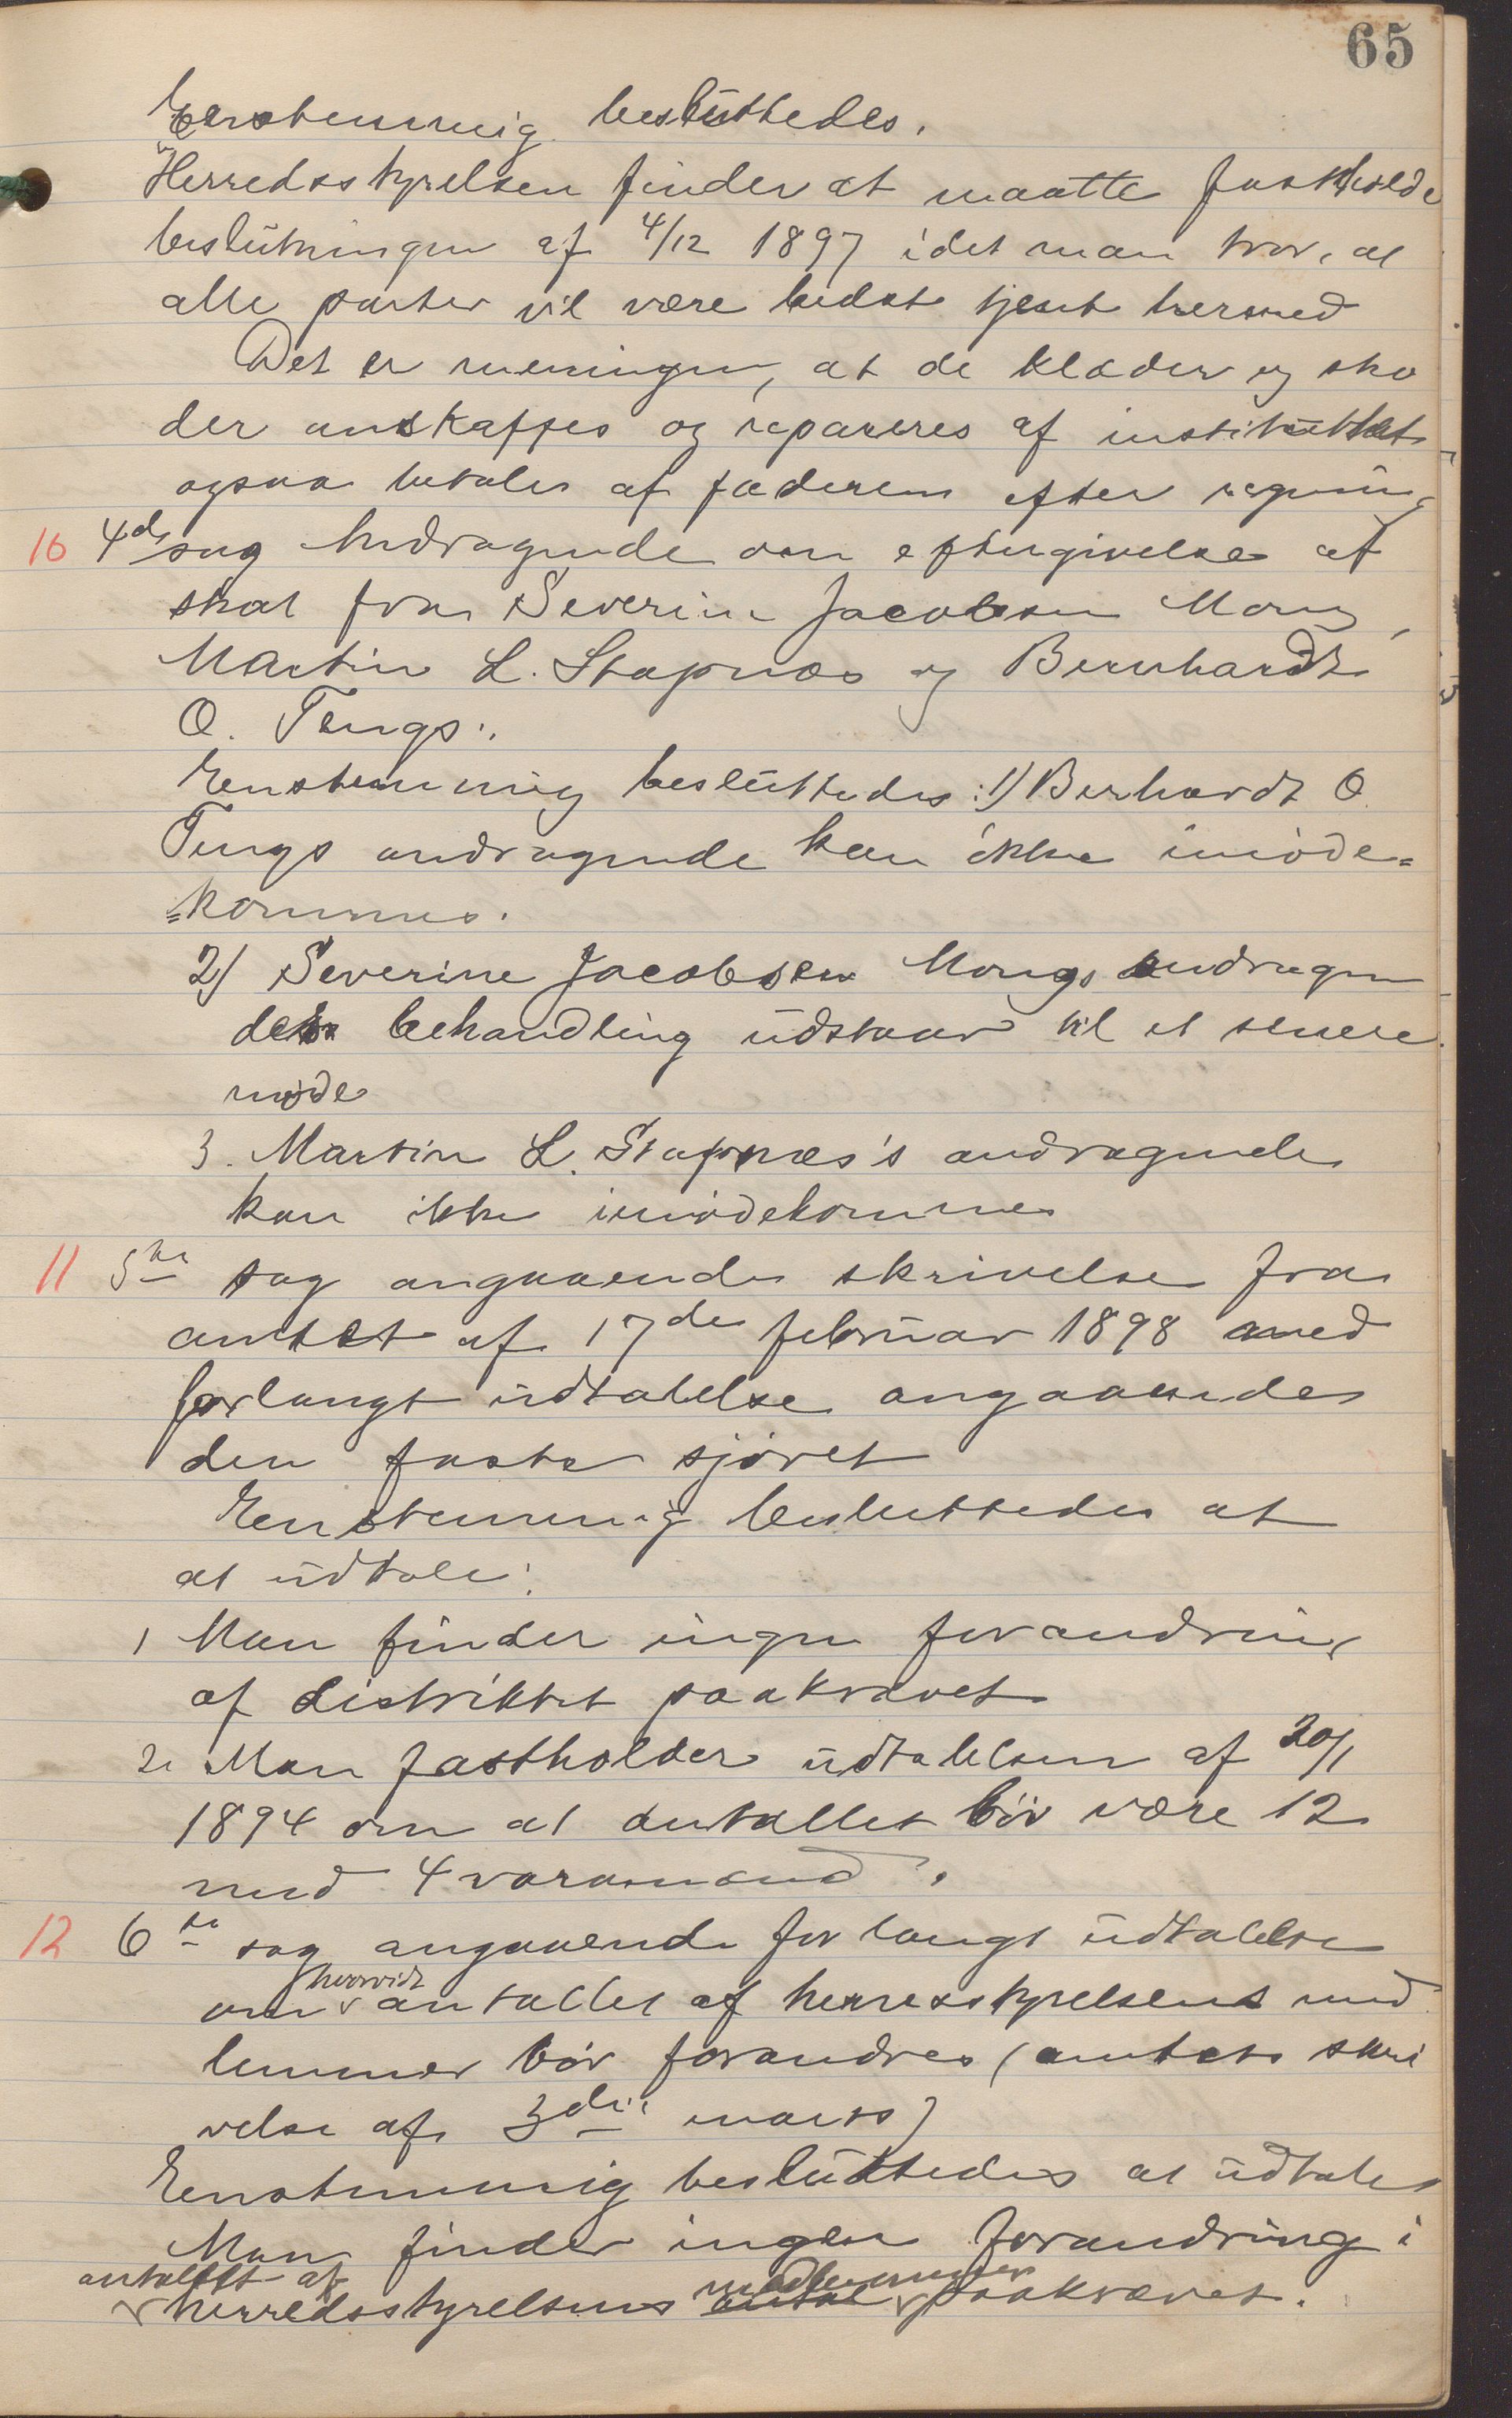 65
Eenstemmig besluttedes.
Herredsstyrelsen finder at maatte fastholde
beslutningen af 4/12 1897 idet man tror, at
alle parter vil være bedst tjent hermed
Det er meningen, at de klæder og sko
der anskaffes og repareres af instituttet
ogsaa betales af fæderne efter regning
10 4de sag Andragende om eftergivelse af
skat fra Severin Jacobsen Mong,
Martin L. Stapnæs og Bernhardt
O. Tengs.
Enstemmig besluttedes: 1) Berhardt O.
Tengs andragende kan ikke imøde=
=kommes.
2) Severine Jacobsen Mongs andragen
des behandling udstaar til et senere
møde
3. Martin L. Stapnæs's andragende
kan ikke imødekommes
11 5te sag angaaende skrivelse fra
amtet af 17de februar 1898 med
forlangt udtalelse angaaende
den faste sjøret
Enstemmig besluttedes at
at udtale:
1 Man finder ingen forandring
af distriktet paakrævet
2. Man fastholder udtalelsen af 20/1
1894 om at antallet bør være 12
med 4 varamænd.
12 6te sag angaaende forlangt udtalelse
om hvorvidt antallet af herresstyrelsens med
lemmer bør forandres (amtets skri
velse af 3die marts)
Eenstemmig besluttedes at udtale
Man finder ingen forandring i
antallet af herredsstyrelsens antal medlemmer paakrævet.